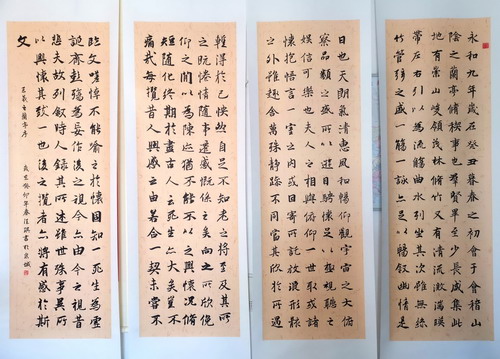 永和九年歲在癸丑暮春之初會于會稽山
陰之蘭亭脩稧事也群賢畢至少長咸集此
地有崇山峻領茂林脩竹又有清流激湍暎
帶左右引以為流觴曲水列坐其次雖無絲
竹管弦之盛一觴一詠亦足以暢敘幽情是
日也天朗氣清惠風和暢仰觀宇宙之大俯
察品類之盛所以遊目騁懷足以極視聽之
娛信可樂也夫人之相與俯仰一世或取諸
懷抱悟言一室之內或因寄所託放浪形骸
之外雖趣舍萬殊靜躁不同當其欣於所遇
暫得於己怏然自足不知老之將至及其所
之既惓情隨事遷感慨係之矣向之所欣俛
仰之間以為陳迹猶不能不以之興懷況脩
短隨化終期於盡古人云死生亦大矣豈不
痛哉每攬昔人興感之由若合一契未嘗不
臨文嗟悼不能喻之於懷固知一死生為虛
誕齊彭殤為妄作後之視今亦由今之視昔
悲夫故列敘時人錄其所述雖世殊事異所
以興懷其致一也後之覽者亦將有感於斯
文
王羲之蘭亭序
歲在癸卯年春 書於泉城